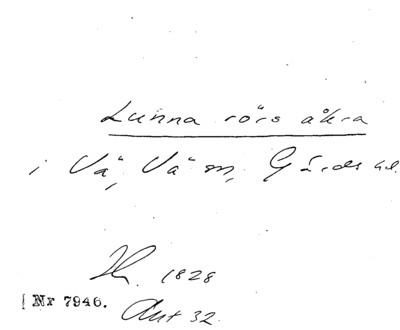 Lunna rörs åkra
i Vä, Vä sn, Gärds hd.
1828
[Nr 7946. Akt 32